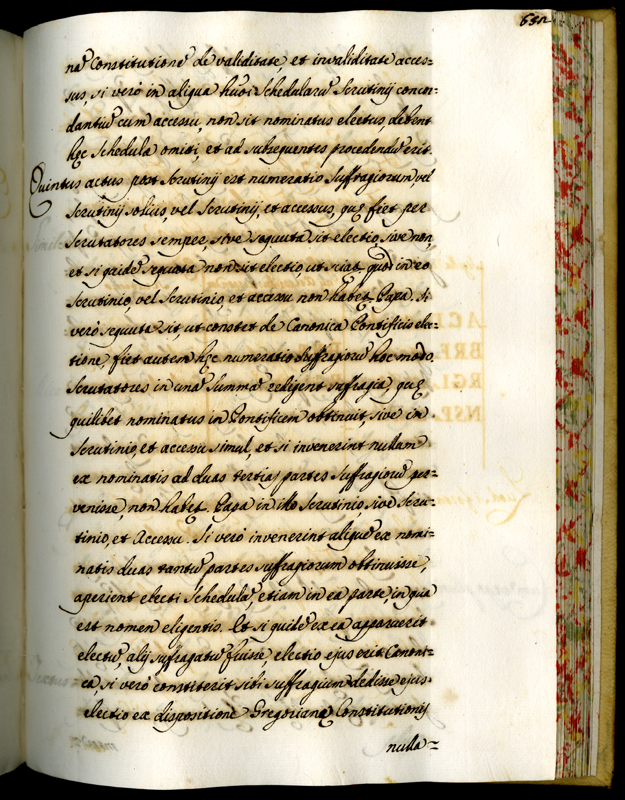 652
nã Constitutionẽ de validitate, et invaliditate acces=
sus, si verò in aliqua hũoi Schedularũ Scrutinij concor=
dantiũ cum accessu, non sit nominatus electus, debent
hęc Schedula omitti, et ad subsequentes procedendũ erit.
Quintus actus post Scrutinij est numeratio suffragiorum, vel
Scrutinij solius, vel Scrutinij, et accessus, quę fiet per
Scrutatores semper, sive sequuta sit electio, sive non,
et si quidẽ sequuta non sit electio, ut sciat, quod in eo
Scrutinio, vel Scrutinio, et accessu non habet Papa. Si
verò sequuta sit, ut constet de Canonica Pontificis elec=
tione, fiet autem hęc numeratio Suffragiorũ hoc modo.
Scrutatores in unã Summã redigent suffragia, quę
quilibet nominatus in Pontificem obtinuit, sive in
Scrutinio, et accessu simul, et si invenerint nullam
ex nominatis ad duas tertias partes Suffragiorũ per=
venisse, non habet Papa in illo Scrutinio, sive Scru=
tinio, et Accessu. Si verò invenerint aliquẽ ex nomi=
natis duas tantũ partes suffragiorum obtinuisse,
aperient electi Schedulã, etiam in ea parte, in qua
est nomen eligentis. Et si quidẽ ex ea apparuerit
electũ, alij suffragatũ fuisse, electio ejus erit Canoni=
ca, si verò constiterit sibi suffragium dedisse ejus
electio ex dispositione Gregorianę Constitutionis
nulla=